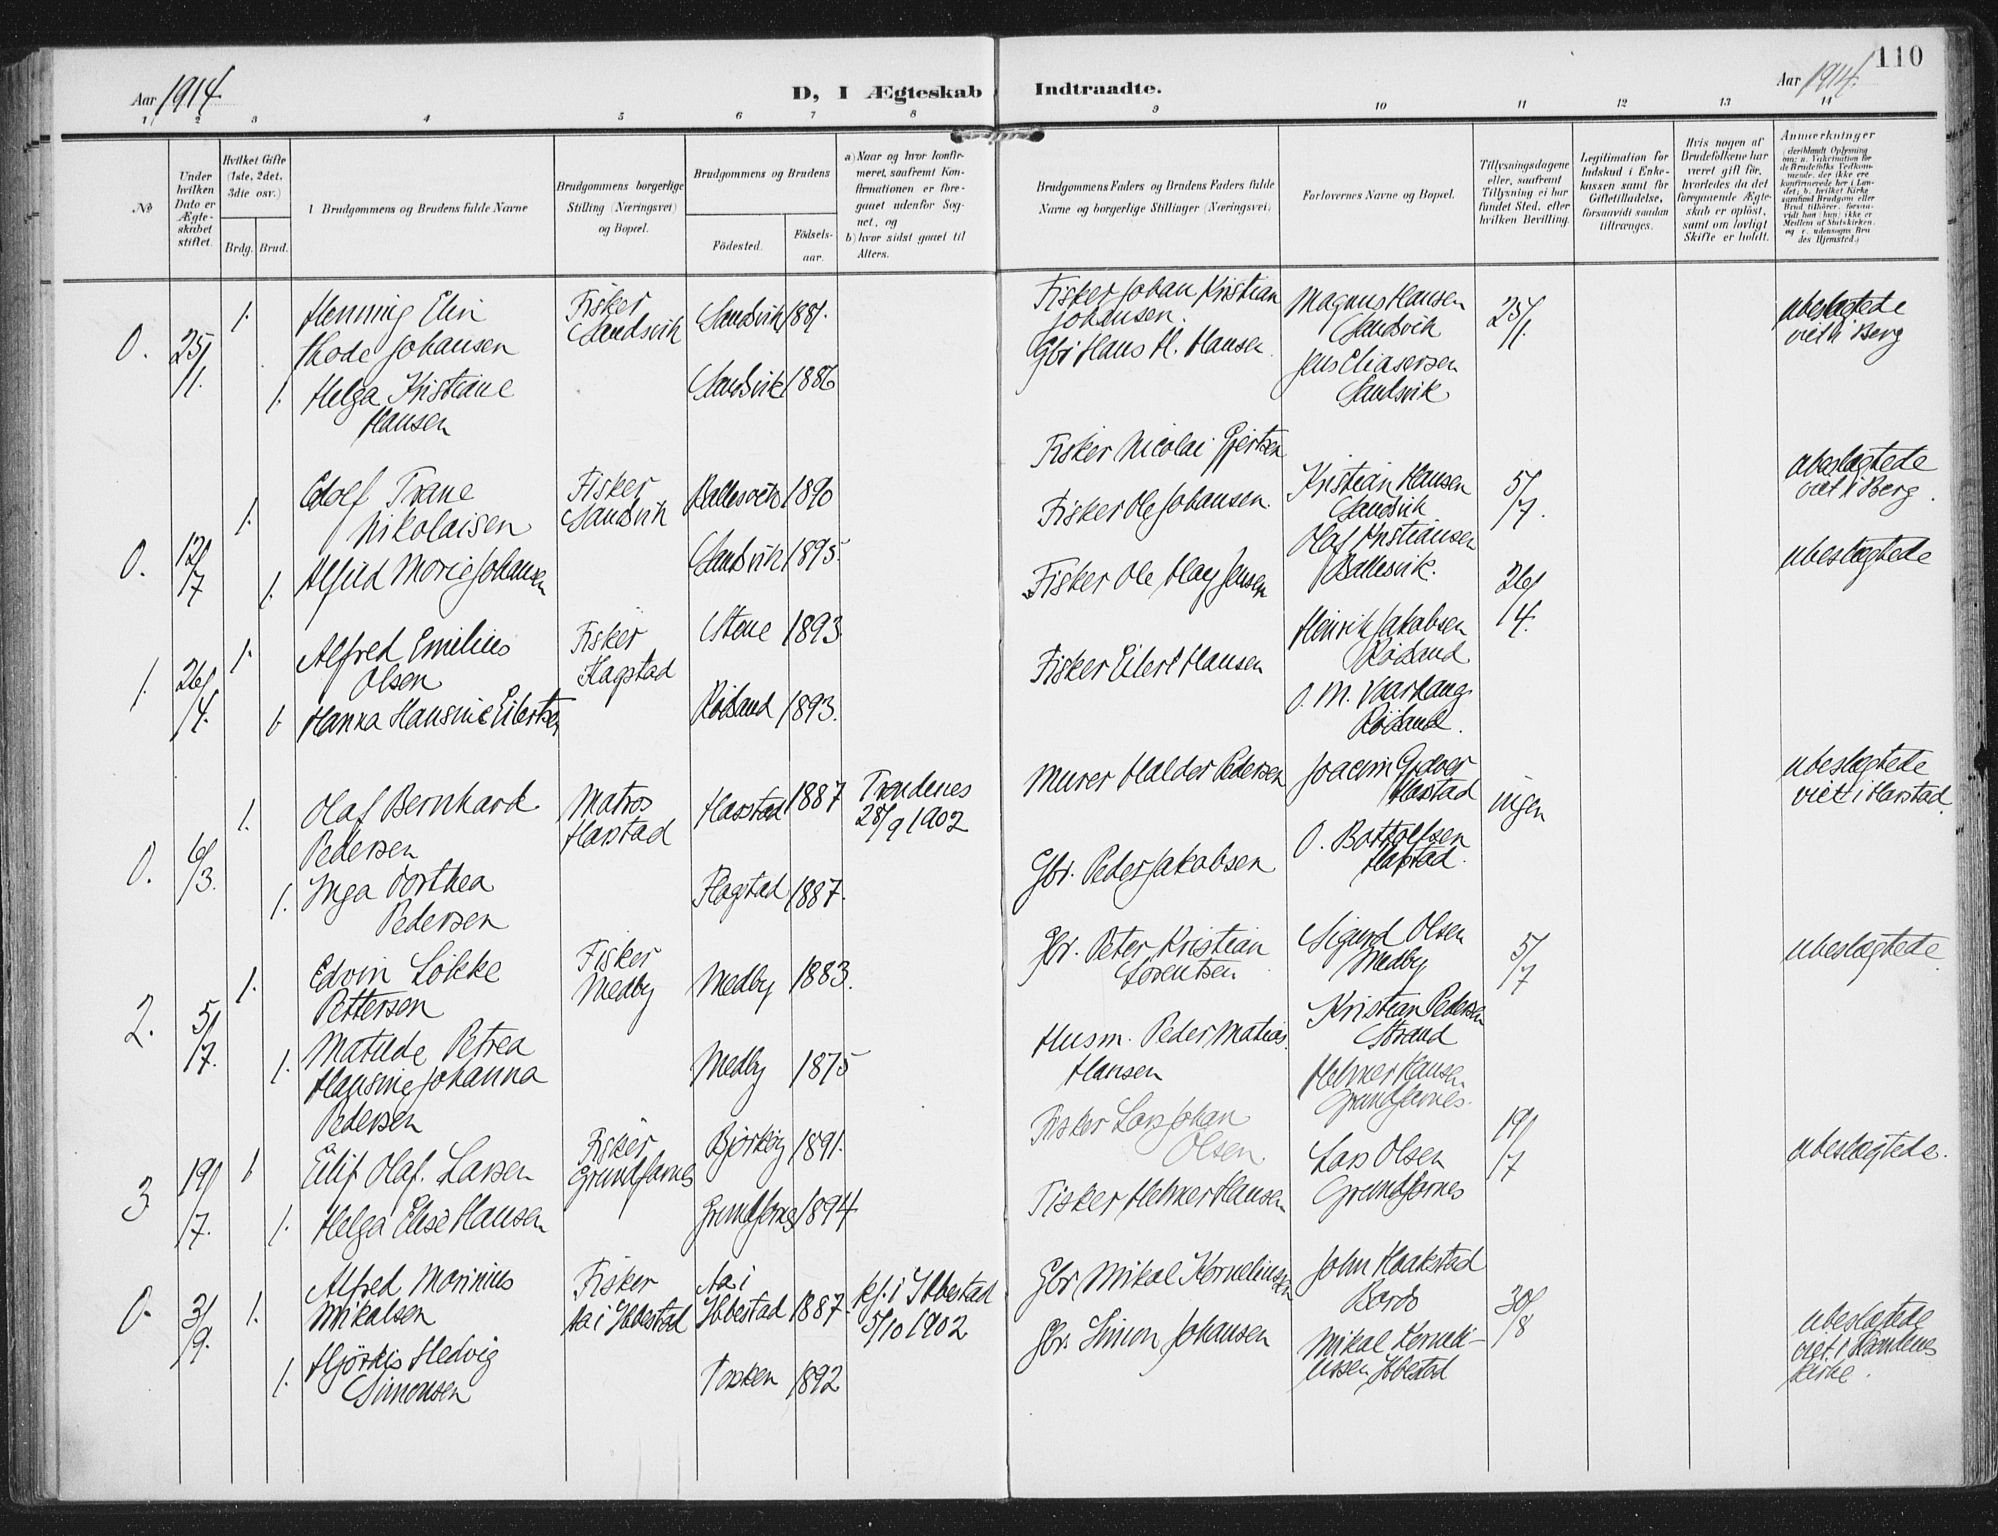 110
Aar 1914
D, I Ægteskab Indtraadte.
Aar 1914
1 2 3 4 5 6 7 8 9 10 11 12 13 14
No
Under hvilken Dato er Ægteskabet stiftet.
Hvilket Gifte (1ste, 2det, 3die osv.)
Brdg. Brud.
Brudgommens og Brudens fulde Navne
Brudgommens borgerlige Stilling (Næringsvei) og Bopæl.
Brudgommens og Brudens
Födested.
Födsels-aar.
a) Naar og hvor konfirmeret, saafremt Konfirmationen er foregaaet udenfor Sognet, og
b) hvor sidst gaaet til Alters.
Brudgommens Faders og Brudens Faders fulde Navne og borgerlige Stillinger (Næringsvei)
Forlovernes Navne og Bopæl.
Tillysningsdagene eller, saafremt Tillysning ei har fundet Sted, efter hvilken Bevilling.
Legitimation for Indskud i Enkekassen samt for Giftetilladelse, forsaavidt saadan tiltrænges.
Hvis nogen af Brudefolkene har været gift för, hvorledes da det foregaaende Ægteskab er oplöst, samt om lovligt Skifte er holdt.
Anmerkninger
0. 25/1. 1. Henning Elin
Thode Johansen
Fisker
Sandsvik
Sandsvik 1881.
1. Helga Kristiane
Hansen
Sandsvik 1886
Fisker Johan Kristian
Johansen.
Gbr Hans H. Hansen
Magnus Hansen
Sandsvik
Jens Eliasersen
Sandsvik
25/1.
ubeslægtede
viet i Berg
0. 12/7 1. Edolf Trane
Nikolaisen
Fisker
Sandsvik
1890
1. Alfild Marie Johansen
Sandsvik 1895.
Fisker Nicolai Gjertsen
Fisker Ole Johansen.
Kristian Hansen
Sandsvik
Olaf Kristiansen
Ballesvik.
5/7.
ubeslægtede
viet i Berg.
1. 26/4. 1. Alfred Emilius
Olsen
Fisker
Flagstad
Stene 1893.
1. Hanna Hansine Eilertsen
Rödsand 1893.
Fisker Ole Hay Jensen
Fisker Eilert Hansen
Henrik Jakobsen
Rödsand
O. M. Vaarhaug
Rödsand.
26/4.
ubeslægtede
0. 6/3. 1. Olaf Bernhard
Pedersen
Matros
Harstad
Harstad 1887
Trondenes
28/9 1902
1. Inga Dorthea
Pedersen
Flagstad 1887.
Murer Halder Pedersen
Gbr. Peder Jakobsen
Joacim
Harstad
O. Bottolfsen
Harstad.
ingen
ubeslægtede
viet i Harstad.
2. 5/7. 1. Edvin Lökke
Pettersen
Fisker
Medby
Medby 1883.
1. Matilde Petrea
Hansine Johanna
Pedersen
Medby 1875
Gbr. Peter Kristian
Lorentsen
Husm. Peder Matias
Hansen
Sigurd Olsen
Medby
Kristian Pedersen
Strand
5/7
ubeslægtede
3 19/7. 1 Eilif Olaf Larsen
Fisker
Grundfarnes
Bjorköy 1891.
1. Helga Elise Hansen
Grundfarnes 1894
Fisker Lars Johan
Olsen.
Fisker Helmer Hansen
Helmer Hansen
Grundfarnes.
Lars Olsen
Grundfarnes
19/7
ubeslægtede.
0. 3/9. 1. Alfred Marinius
Mikalsen
Fisker
Aa i Ibbestad
Aa i
Ibbestad 1887.
kf. i Ibbestad
5/10 1902
1. Hjördis Hedvig
Simonsen
Torsken 1892
Gbr Mikal Korneliussen
Gbr. Simon Johansen
John Haakstad
Bardo
Mikal Korneli-
ussen Ibbestad
30/8
ubeslægtede
viet i Trandenes
kirke.